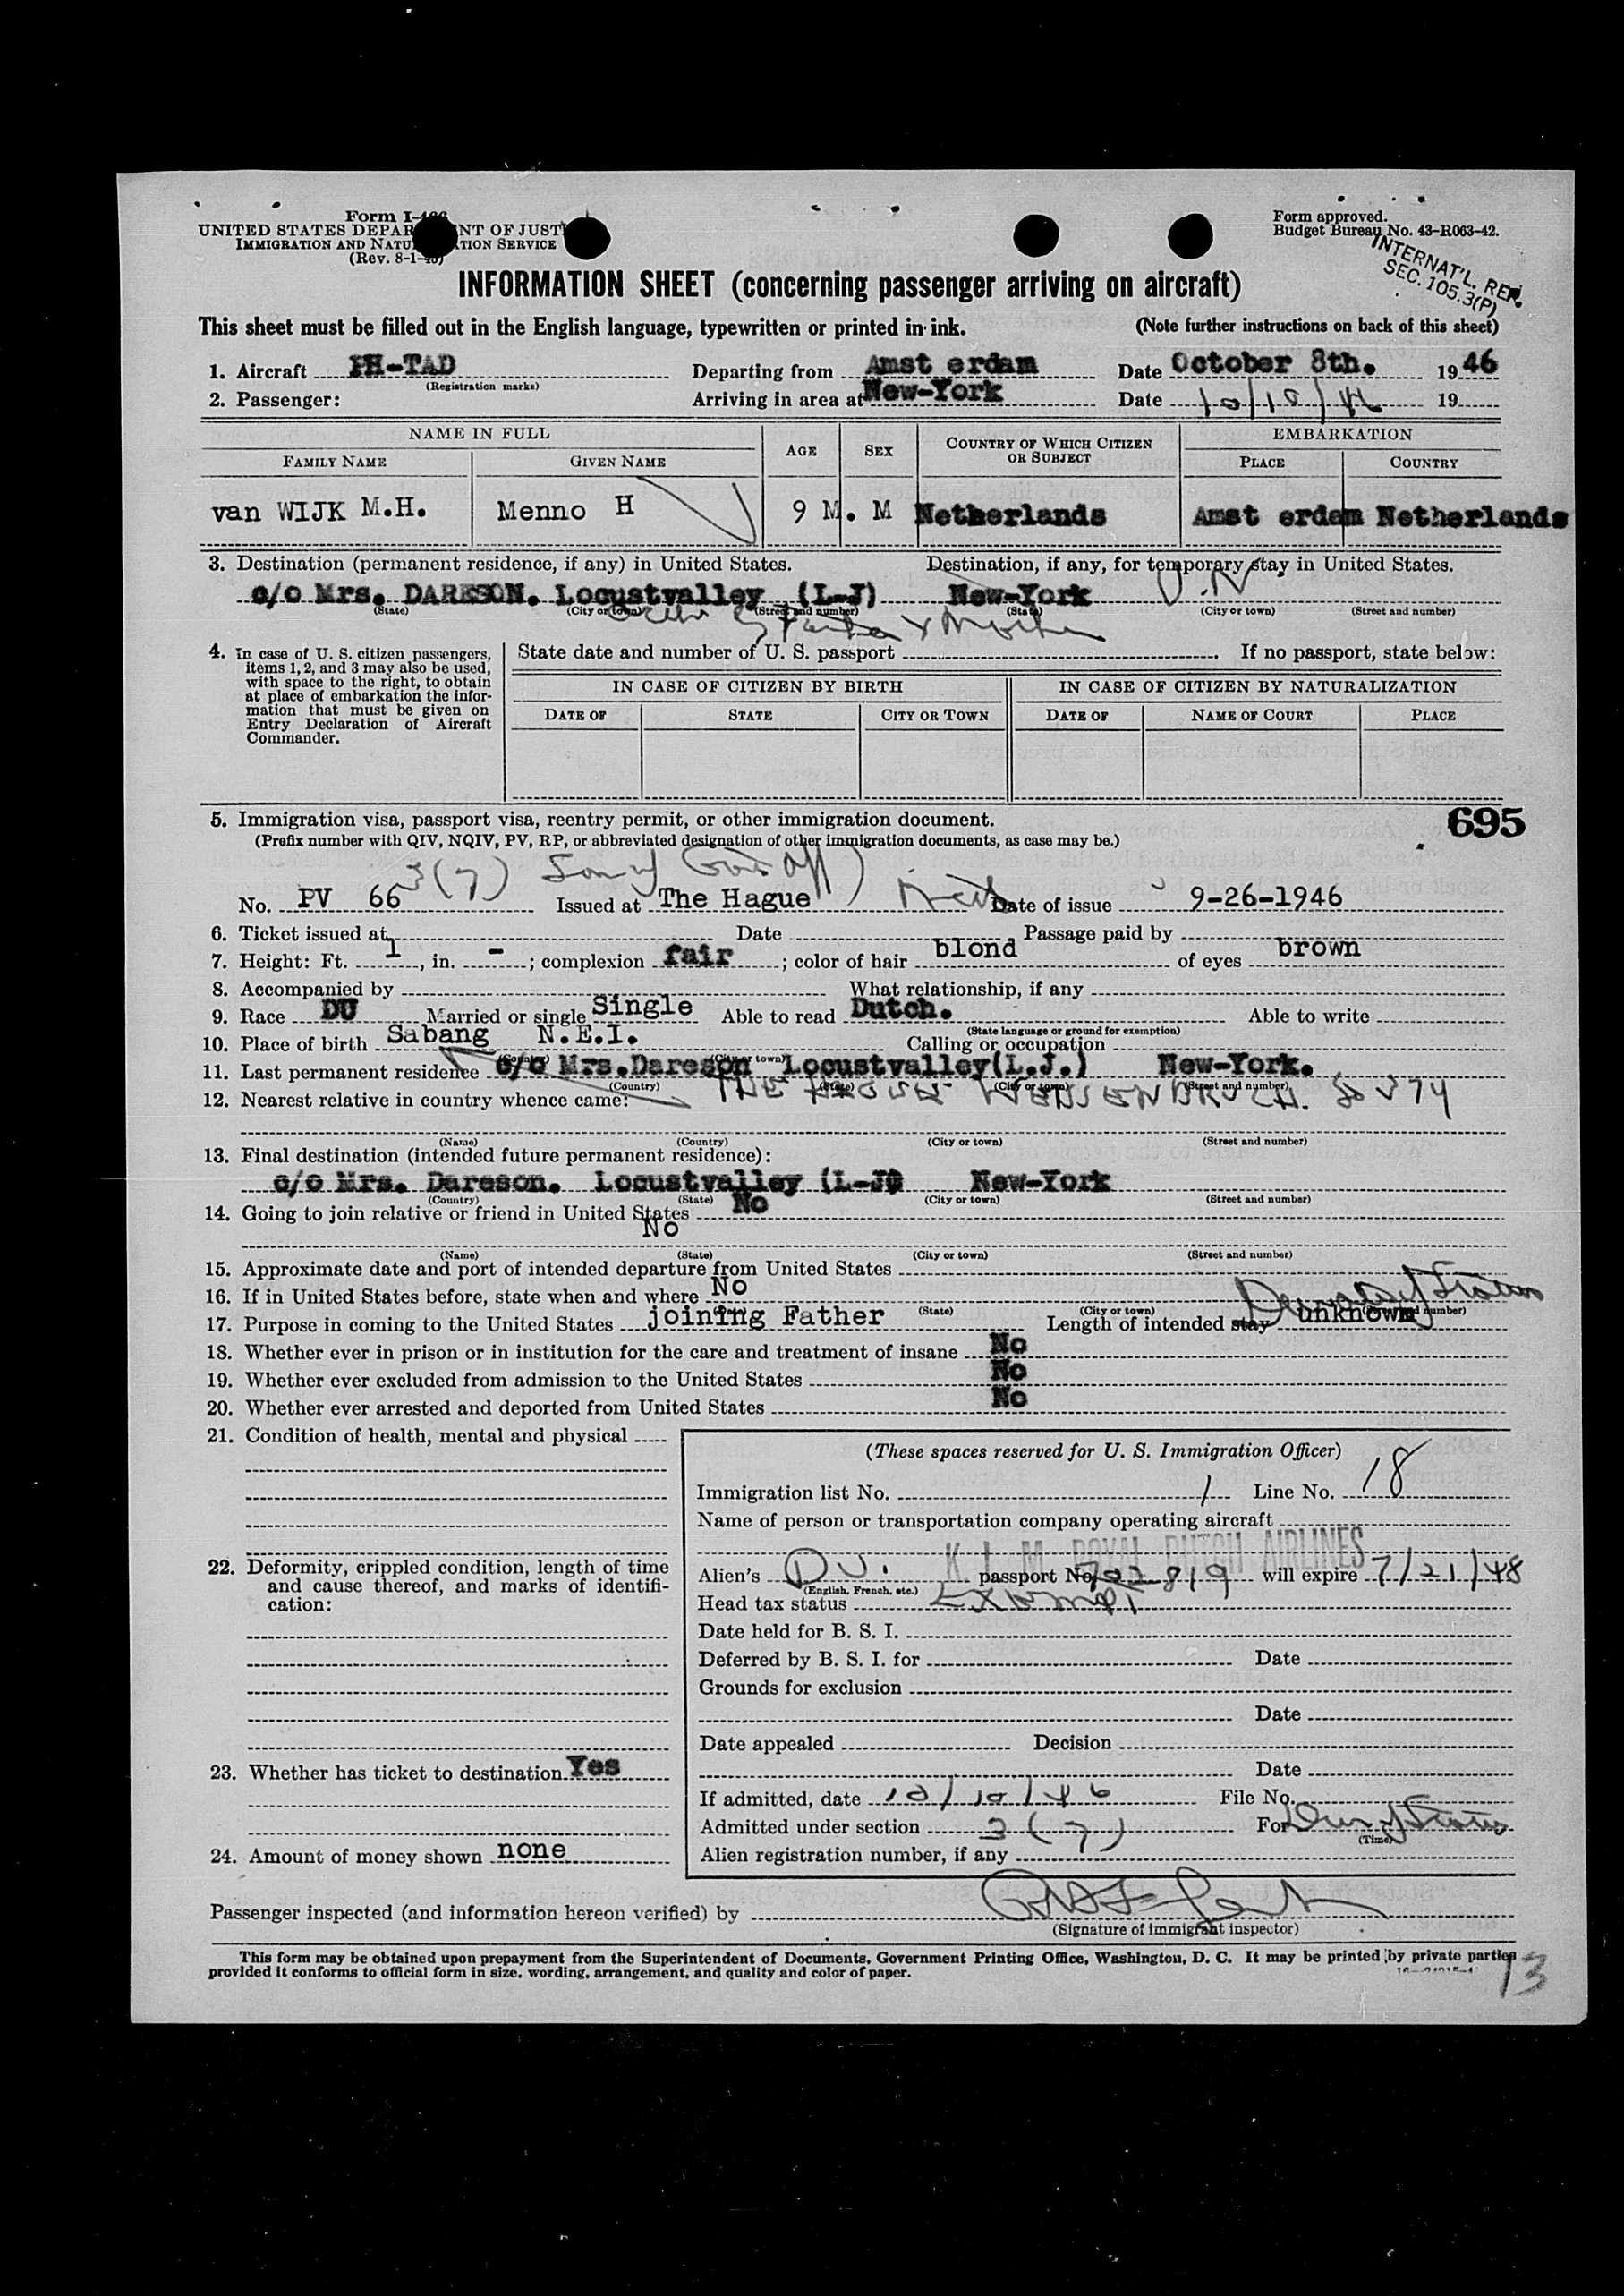 Form I-466
UNITED STATES DEPARTMENT OF JUSTICE
IMMIGRATION AND NATURALIZATION SERVICE
(Rev. 8-1-45)
Form approved.
Budget Bureau No. 43-R063-42.
INTERNAT'L. REP.
SEC. 105.3(P)
INFORMATION SHEET (concerning passenger arriving on aircraft)
This sheet must be filled out in the English language, typewritten or printed in ink. (Note further instructions on back of this sheet)
1. Aircraft PH-TAD Departing from Amst erdam Date October 8th. 1946
(Registration marks)
2. Passenger: Arriving in area at New-York Date 10/10/46 19
NAME IN FULL AGE SEX COUNTRY OF WHICH CITIZEN OR SUBJECT EMBARKATION
FAMILY NAME GIVEN NAME PLACE COUNTRY
van WIJK M.H. Menno H 9 M. M Netherlands Amst erdam Netherlands
3. Destination (permanent residence, if any) in United States. Destination, if any, for temporary stay in United States.
c/o Mrs. DARESON. Locustvalley (L-J) New-York U.N
(State) (City or town) (Street and number) (State) (City or town) (Street and number)
4. In case of U. S. citizen passengers, items 1, 2, and 3 may also be used, with space to the right, to obtain at place of embarkation the information that must be given on Entry Declaration of Aircraft Commander.
State date and number of U. S. passport . If no passport, state below:
IN CASE OF CITIZEN BY BIRTH IN CASE OF CITIZEN BY NATURALIZATION
DATE OF STATE CITY OR TOWN DATE OF NAME OF COURT PLACE
5. Immigration visa, passport visa, reentry permit, or other immigration document. 695
(Prefix number with QIV, NQIV, PV, RP, or abbreviated designation of other immigration documents, as case may be.)
3(7) Son of Gov't Off
No. PV 66 Issued at The Hague Date of issue 9-26-1946
6. Ticket issued at Date Passage paid by
7. Height: Ft. 1, in. - ; complexion fair ; color of hair blond of eyes brown
8. Accompanied by What relationship, if any
9. Race DU Married or single Single Able to read Dutch. Able to write
(State language or ground for exemption)
10. Place of birth Sabang N.E.I. Calling or occupation
(Country) (City or town)
11. Last permanent residence c/o Mrs.Dareson Locustvalley(L.J.) New-York.
(Country) (State) (City or town) (Street and number)
12. Nearest relative in country whence came: THE HAGUE
(Name) (Country) (City or town) (Street and number)
13. Final destination (intended future permanent residence):
c/o Mrs. Dareson. Locustvalley (L-J) New-York
(Country) (State) (City or town) (Street and number)
14. Going to join relative or friend in United States No
No
(Name) (State) (City or town) (Street and number)
15. Approximate date and port of intended departure from United States
16. If in United States before, state when and where No
(State) (City or town) (Street and number)
17. Purpose in coming to the United States joining Father Length of intended stay unknown
18. Whether ever in prison or in institution for the care and treatment of insane No
19. Whether ever excluded from admission to the United States No
20. Whether ever arrested and deported from United States No
21. Condition of health, mental and physical
22. Deformity, crippled condition, length of time and cause thereof, and marks of identification:
23. Whether has ticket to destination Yes
24. Amount of money shown none
(These spaces reserved for U. S. Immigration Officer)
Immigration list No. 1 Line No. 18
Name of person or transportation company operating aircraft
K L M ROYAL DUTCH AIRLINES
Alien's DU. passport No. will expire 7/21/48
(English, French, etc.)
Head tax status Exempt
Date held for B. S. I.
Deferred by B. S. I. for Date
Grounds for exclusion
Date
Date appealed Decision
Date
If admitted, date 10/10/46 File No.
Admitted under section 3(7) For Dur of Status
(Time)
Alien registration number, if any
Passenger inspected (and information hereon verified) by
(Signature of immigrant inspector)
This form may be obtained upon prepayment from the Superintendent of Documents, Government Printing Office, Washington, D. C. It may be printed by private parties
provided it conforms to official form in size, wording, arrangement, and quality and color of paper.
13